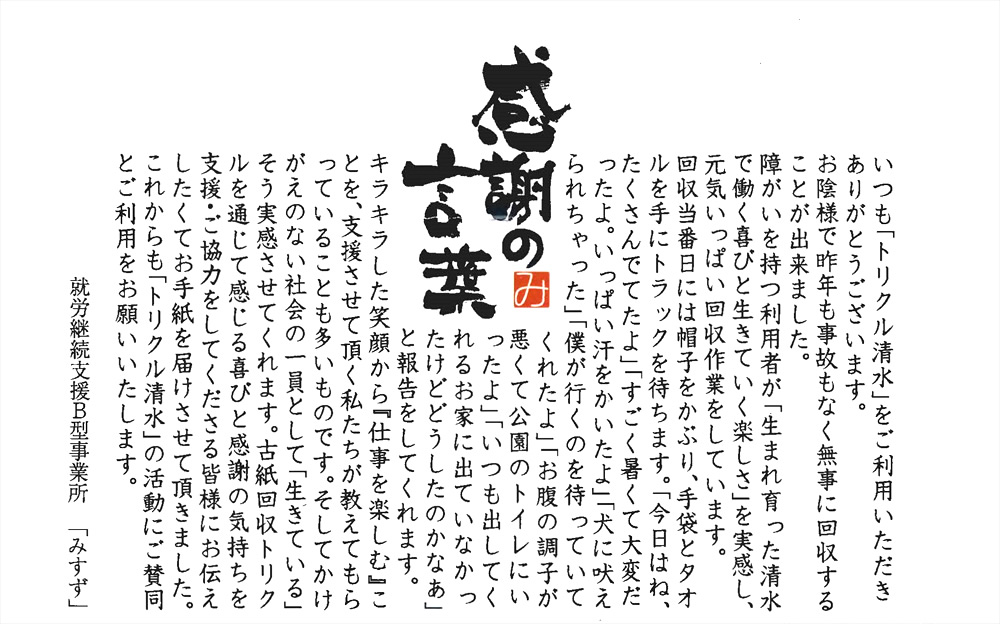 感謝の
言葉
み
いつも「トリクル清水」をご利用いただき
ありがとうございます。
お陰様で昨年も事故もなく無事に回収する
ことが出来ました。
障がいを持つ利用者が「生まれ育った清水
で働く喜びと生きていく楽しさ」を実感し、
元気いっぱい回収作業をしています。
回収当番日には帽子をかぶり、手袋とタオ
ルを手にトラックを待ちます。「今日はね、
たくさんでてたよ」「すごく暑くて大変だ
ったよ。いっぱい汗をかいたよ」「犬に吠え
られちゃった」「僕が行くのを待っていて
くれたよ」「お腹の調子が
悪くて公園のトイレにい
ったよ」「いつも出してく
れるお家に出ていなかっ
たけどどうしたのかなぁ」
と報告をしてくれます。
キラキラした笑顔から『仕事を楽しむ』こ
とを、支援させて頂く私たちが教えてもら
っていることも多いものです。そしてかけ
がえのない社会の一員として「生きている」
そう実感させてくれます。古紙回収トリク
ルを通じて感じる喜びと感謝の気持ちを
支援・ご協力をしてくださる皆様にお伝え
したくてお手紙を届けさせて頂きました。
これからも「トリクル清水」の活動にご賛同
とご利用をお願いいたします。
就労継続支援B型事業所 「みすず」